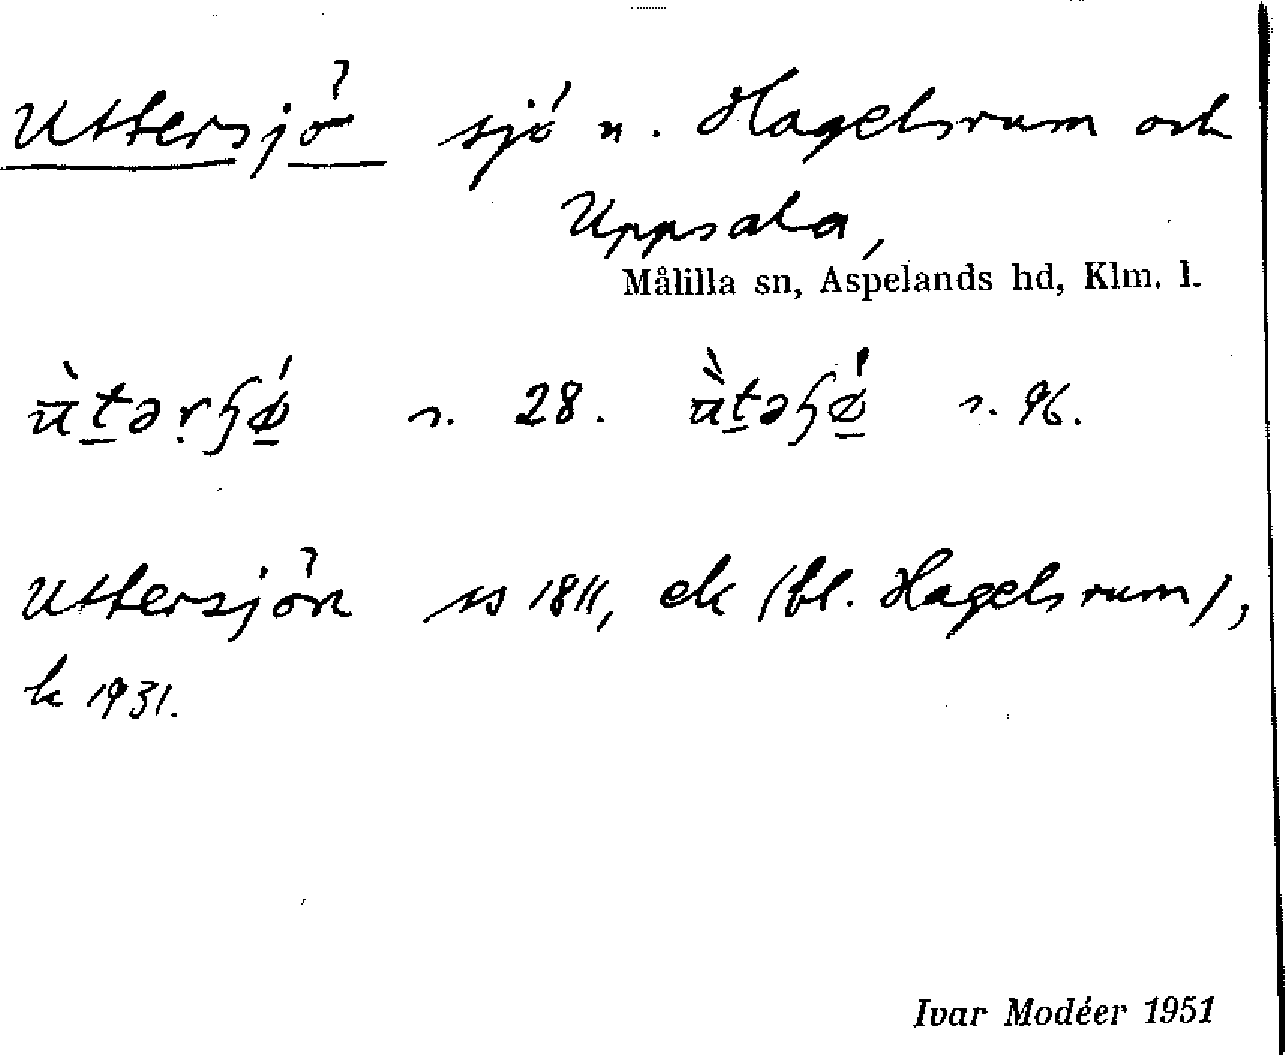 Uttersjö sjö u. Hagelsrum och
Uppsala,
Målilla sn, Aspelands hd, Klm. l.
s. 28. s. 96.
Uttersjön ss 1811, ek (bl. Hagelsrum),
k 1931.
Ivar Modéer 1951